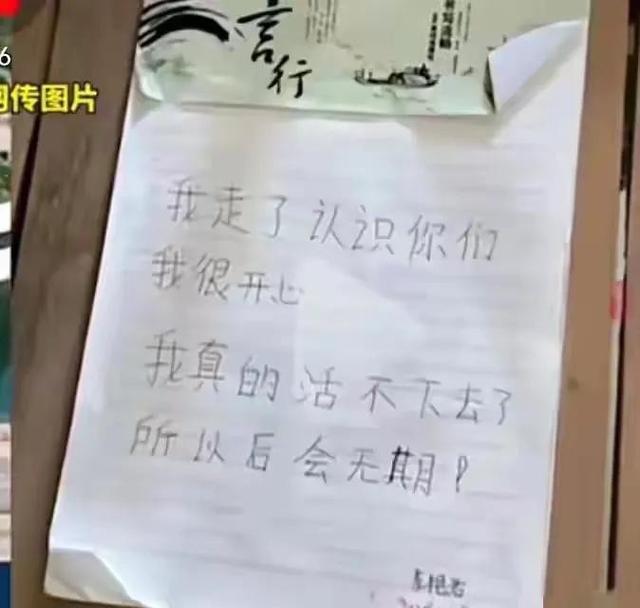 6
网传图片
言行
我走了认识你们
我很开心
我真的活不下去了
所以后会无期?